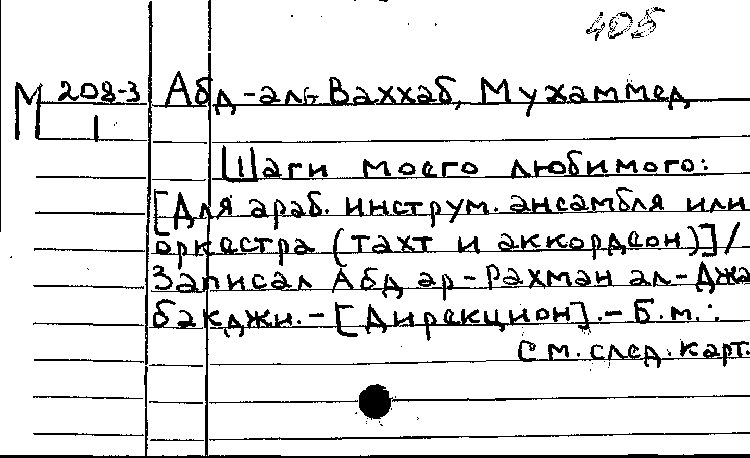 405
М 208-3 Абд-ал-Ваххаб, Мухаммед
1
Шаги моего любимого:
[Для араб. инструм. ансамбля или
оркестра (тахт и аккордеон)]/
Записал Абд ар-Рахман ал-Джа
бакджи.-[Дирекцион].-Б.м.:
См. след. карт.